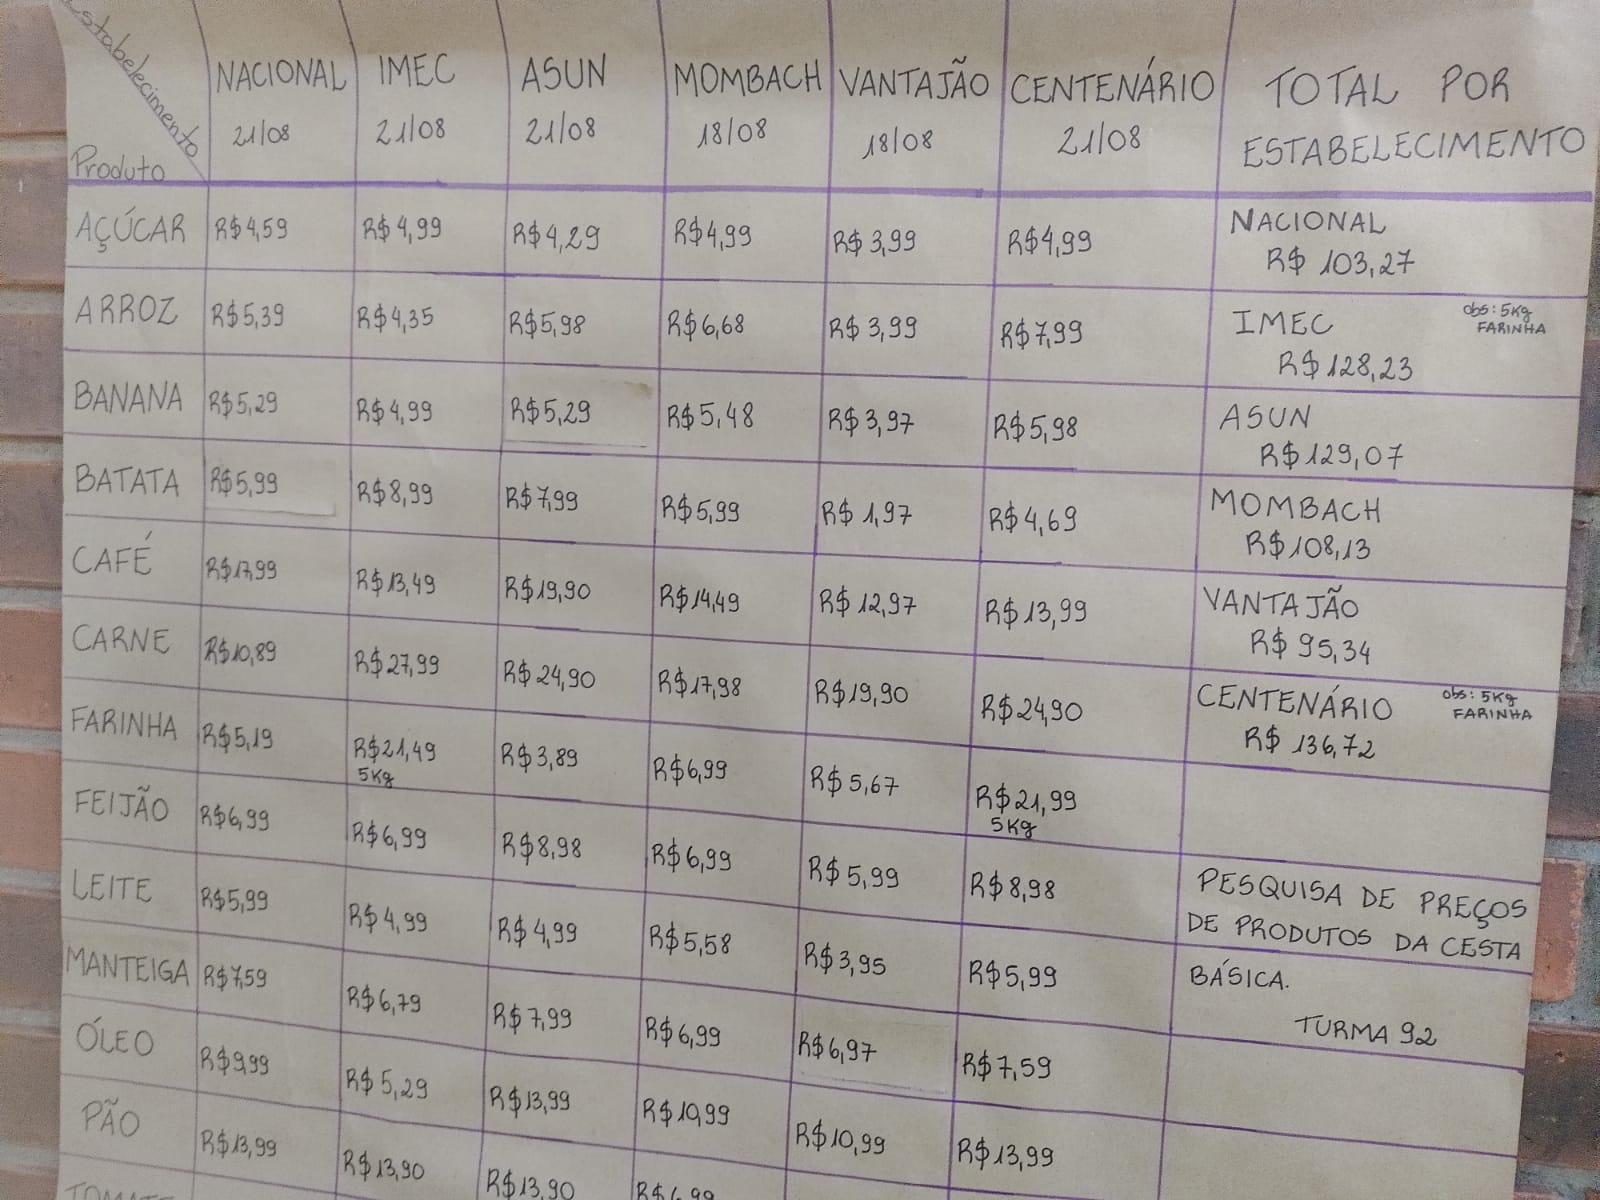 Estabelecimento
Produto
NACIONAL 21/08 IMEC 21/08 ASUN 21/08 MOMBACH 18/08 VANTAJÃO 18/08 CENTENÁRIO 21/08 TOTAL POR ESTABELECIMENTO
AÇÚCAR R$4,59 R$4,99 R$4,29 R$4,99 R$3,99 R$4,99
ARROZ R$5,39 R$4,35 R$5,98 R$6,68 R$3,99 R$7,99
BANANA R$5,29 R$4,99 R$5,29 R$5,48 R$3,97 R$5,98
BATATA R$5,99 R$8,99 R$7,99 R$5,99 R$1,97 R$4,69
CAFÉ R$17,99 R$13,49 R$19,90 R$14,49 R$12,97 R$13,99
CARNE R$10,89 R$27,99 R$24,90 R$17,98 R$19,90 R$24,90
FARINHA R$5,19 R$21,49 5Kg R$3,89 R$6,99 R$5,67 R$21,99 5Kg
FEIJÃO R$6,99 R$6,99 R$8,98 R$6,99 R$5,99 R$8,98
LEITE R$5,99 R$4,99 R$4,99 R$5,58 R$3,95 R$5,99
MANTEIGA R$7,59 R$6,79 R$7,99 R$6,99 R$6,97 R$7,59
ÓLEO R$9,99 R$5,29 R$13,99 R$10,99 R$10,99 R$13,99
PÃO R$13,99 R$13,90 R$13,90 R$6,99
NACIONAL
R$ 103,27
IMEC obs: 5Kg
FARINHA
R$128,23
ASUN
R$129,07
MOMBACH
R$108,13
VANTAJÃO
R$ 95,34
CENTENÁRIO obs: 5Kg
FARINHA
R$ 136,72
PESQUISA DE PREÇOS
DE PRODUTOS DA CESTA
BÁSICA.
TURMA 92